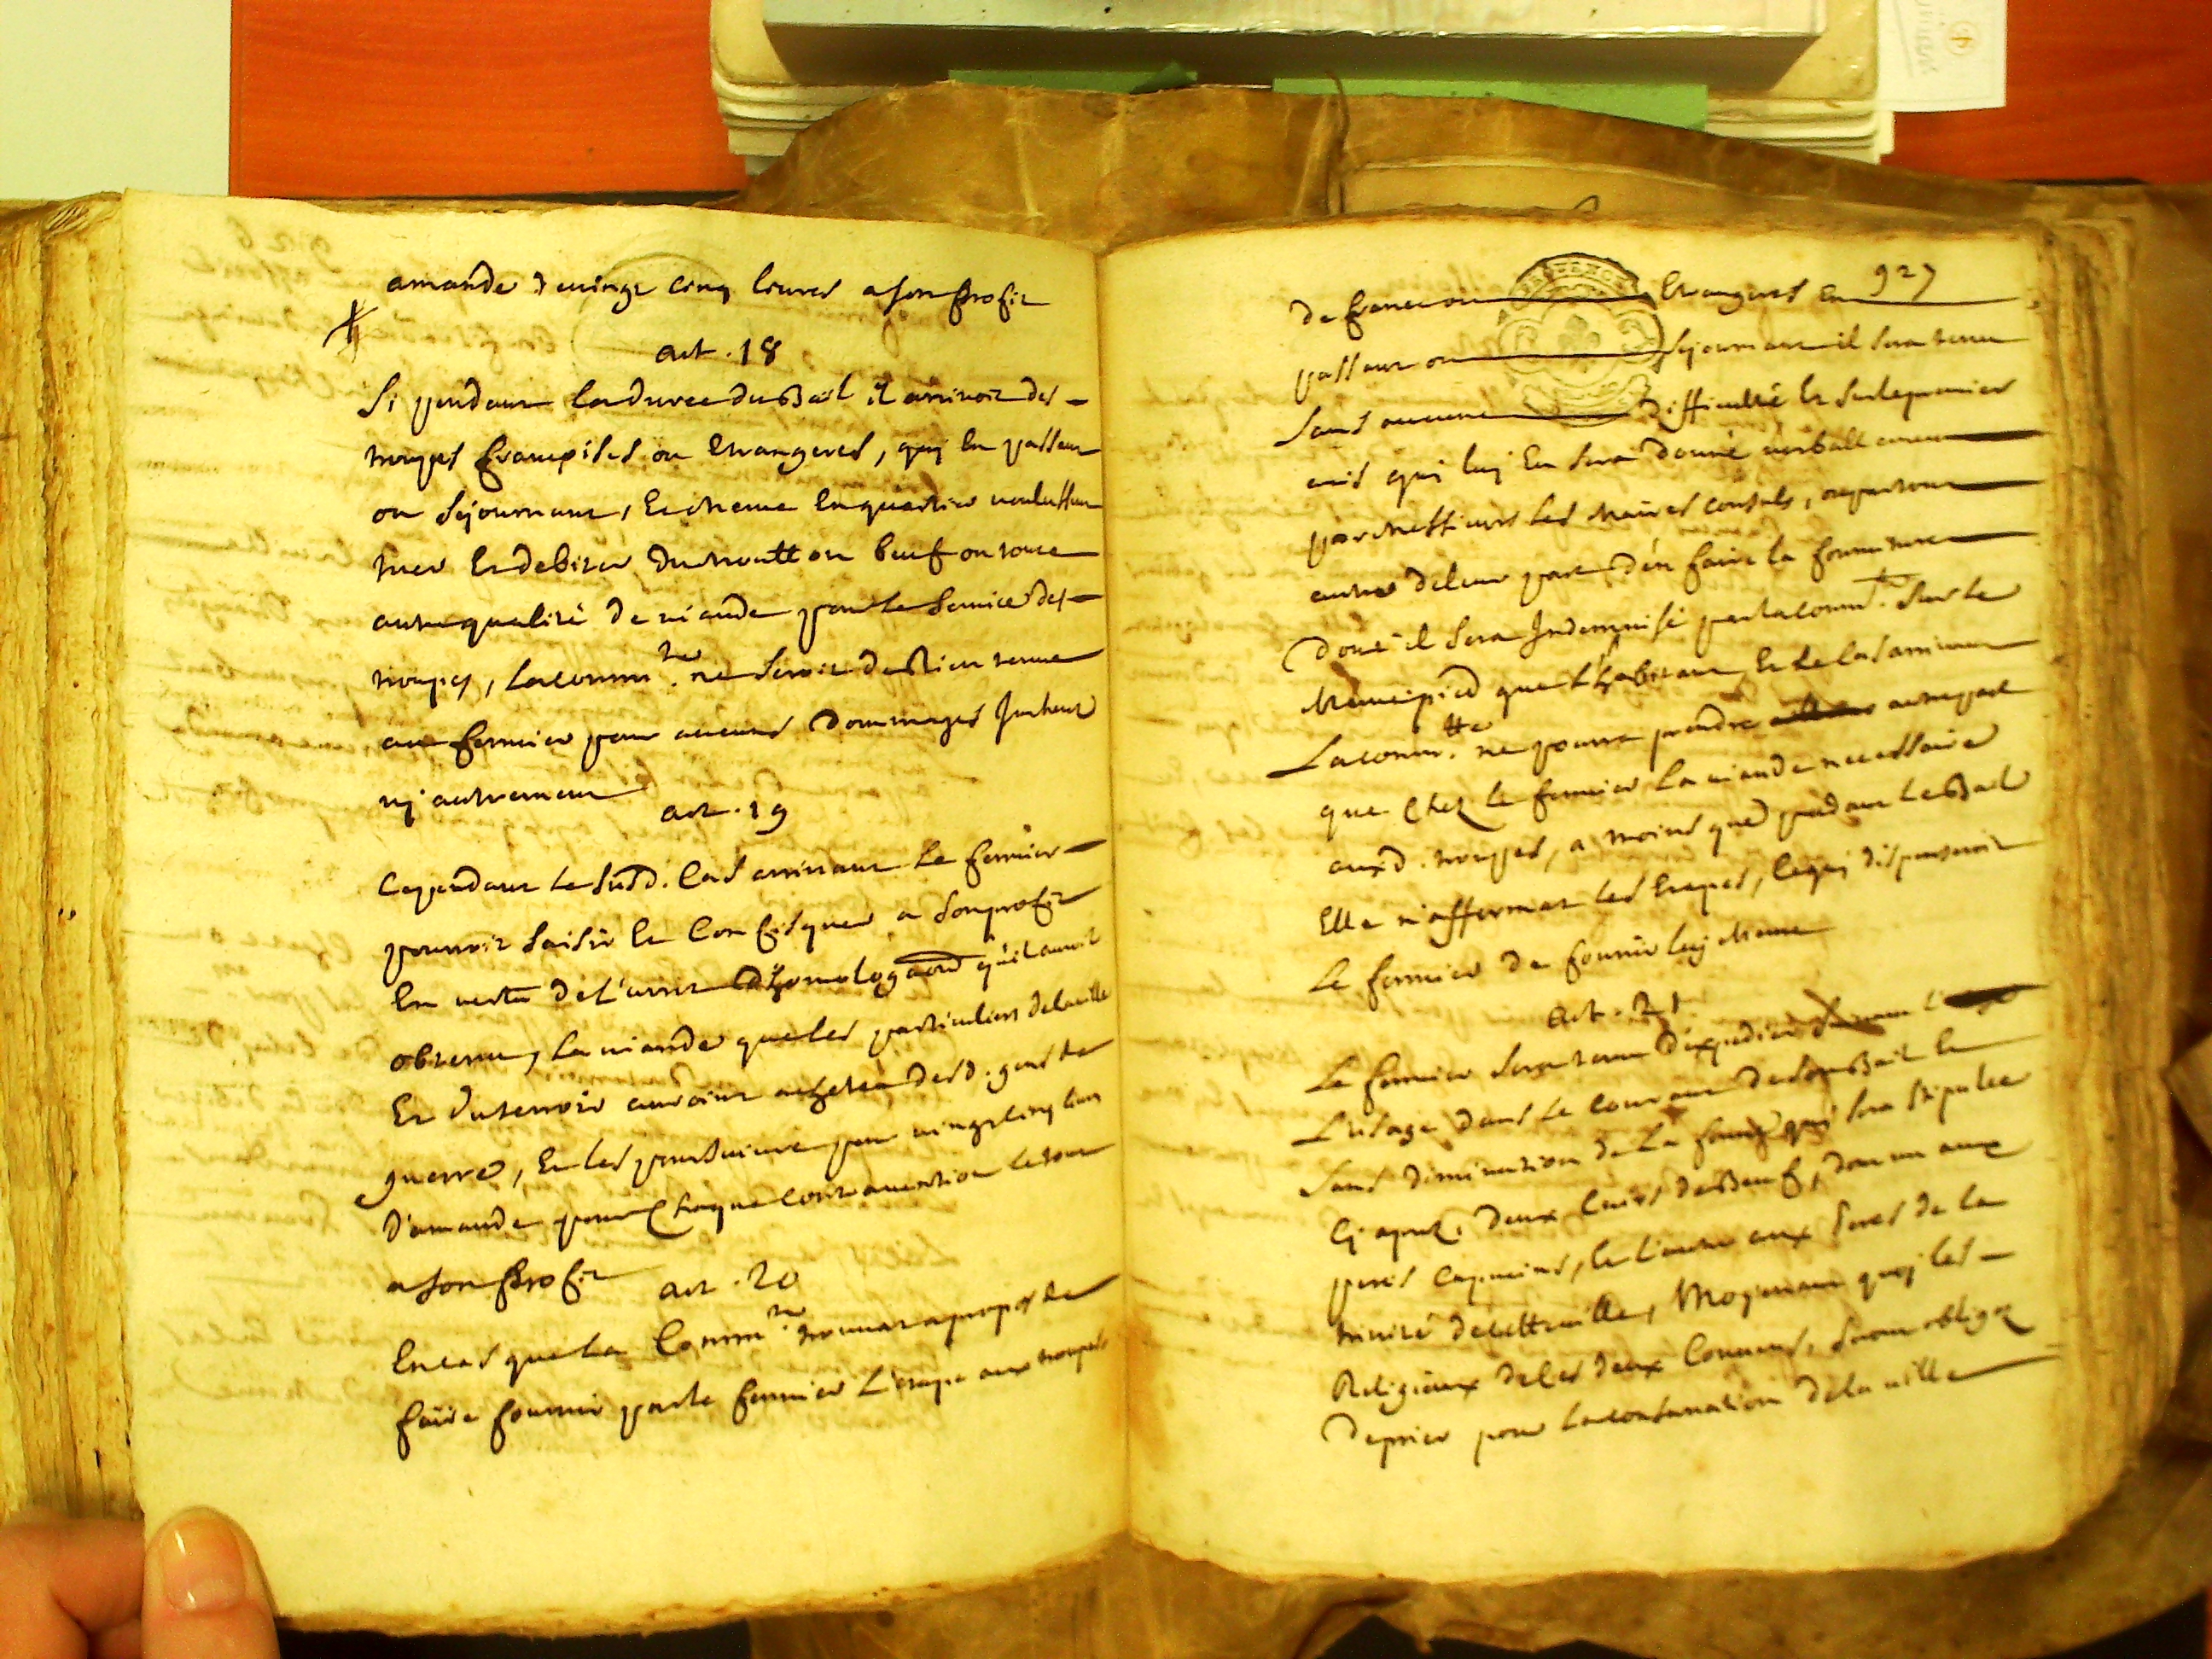 amande de vingt cinq livres a son profit
art. 18
Si pendant la durée du Bail il arrivoit des
troupes françoises ou etrangeres, qui en passant
ou sejournant, et meme en quartier voulussent
tuer et debiter du moutton beuf ou toute
autre qualité de viande pour le service des
troupes, la comm.té ne seroit de Rien tenue
au fermier pour aucuns dommages Interets
ny autrement
art. 19
Cependant le susd. cas arrivant le fermier
pourroit saisir et confisquer a son profit
en vertu de l'arret d'homologaôn qu'il auroit
obtenu, la viande que les particuliers de la ville
Et du terroir auroint achetée desd. gens de
guerre, et les poursuivre pour vingt cinq livres
D'amande pour chaque contravention le tout
a son profit
art. 20
En cas que la Comm.té trouvat a propos de
faire fournir par le fermier l'etape aux troupes
927
de france ou etrangeres en
passant ou sejournant il sera tenu
sans aucune difficulté et sur le premier
avis qui luy en sera donné verballement
par messieurs les maires consuls, ou partout
autre de leur part d'en faire la fourniture
Dont il sera Indemnisé par la comm.té sur le
mem pied que l'habitant, et le cas arrivant
La comm.té ne pourra prendre autre part
que chez le fermier la viande necessaire
auxd. troupes, a moins que pendant le Bail
Elle n'affermat les etapes, ce qui dispenseroit
le fermier de fournir luy meme
art. 21
Le fermier sera tenu d'expedier
L'usage dans le courant de son Bail et
sans diminution de la qui sera stipulée
cy aprez, deux cuirs de Beuf, dont un aux
peres capucins, et l'autre aux peres de la
trinité de cette ville, moyenant quoy les
Religieux de ces deux Couvens, seront obligez
De prier pour la conservation de la ville